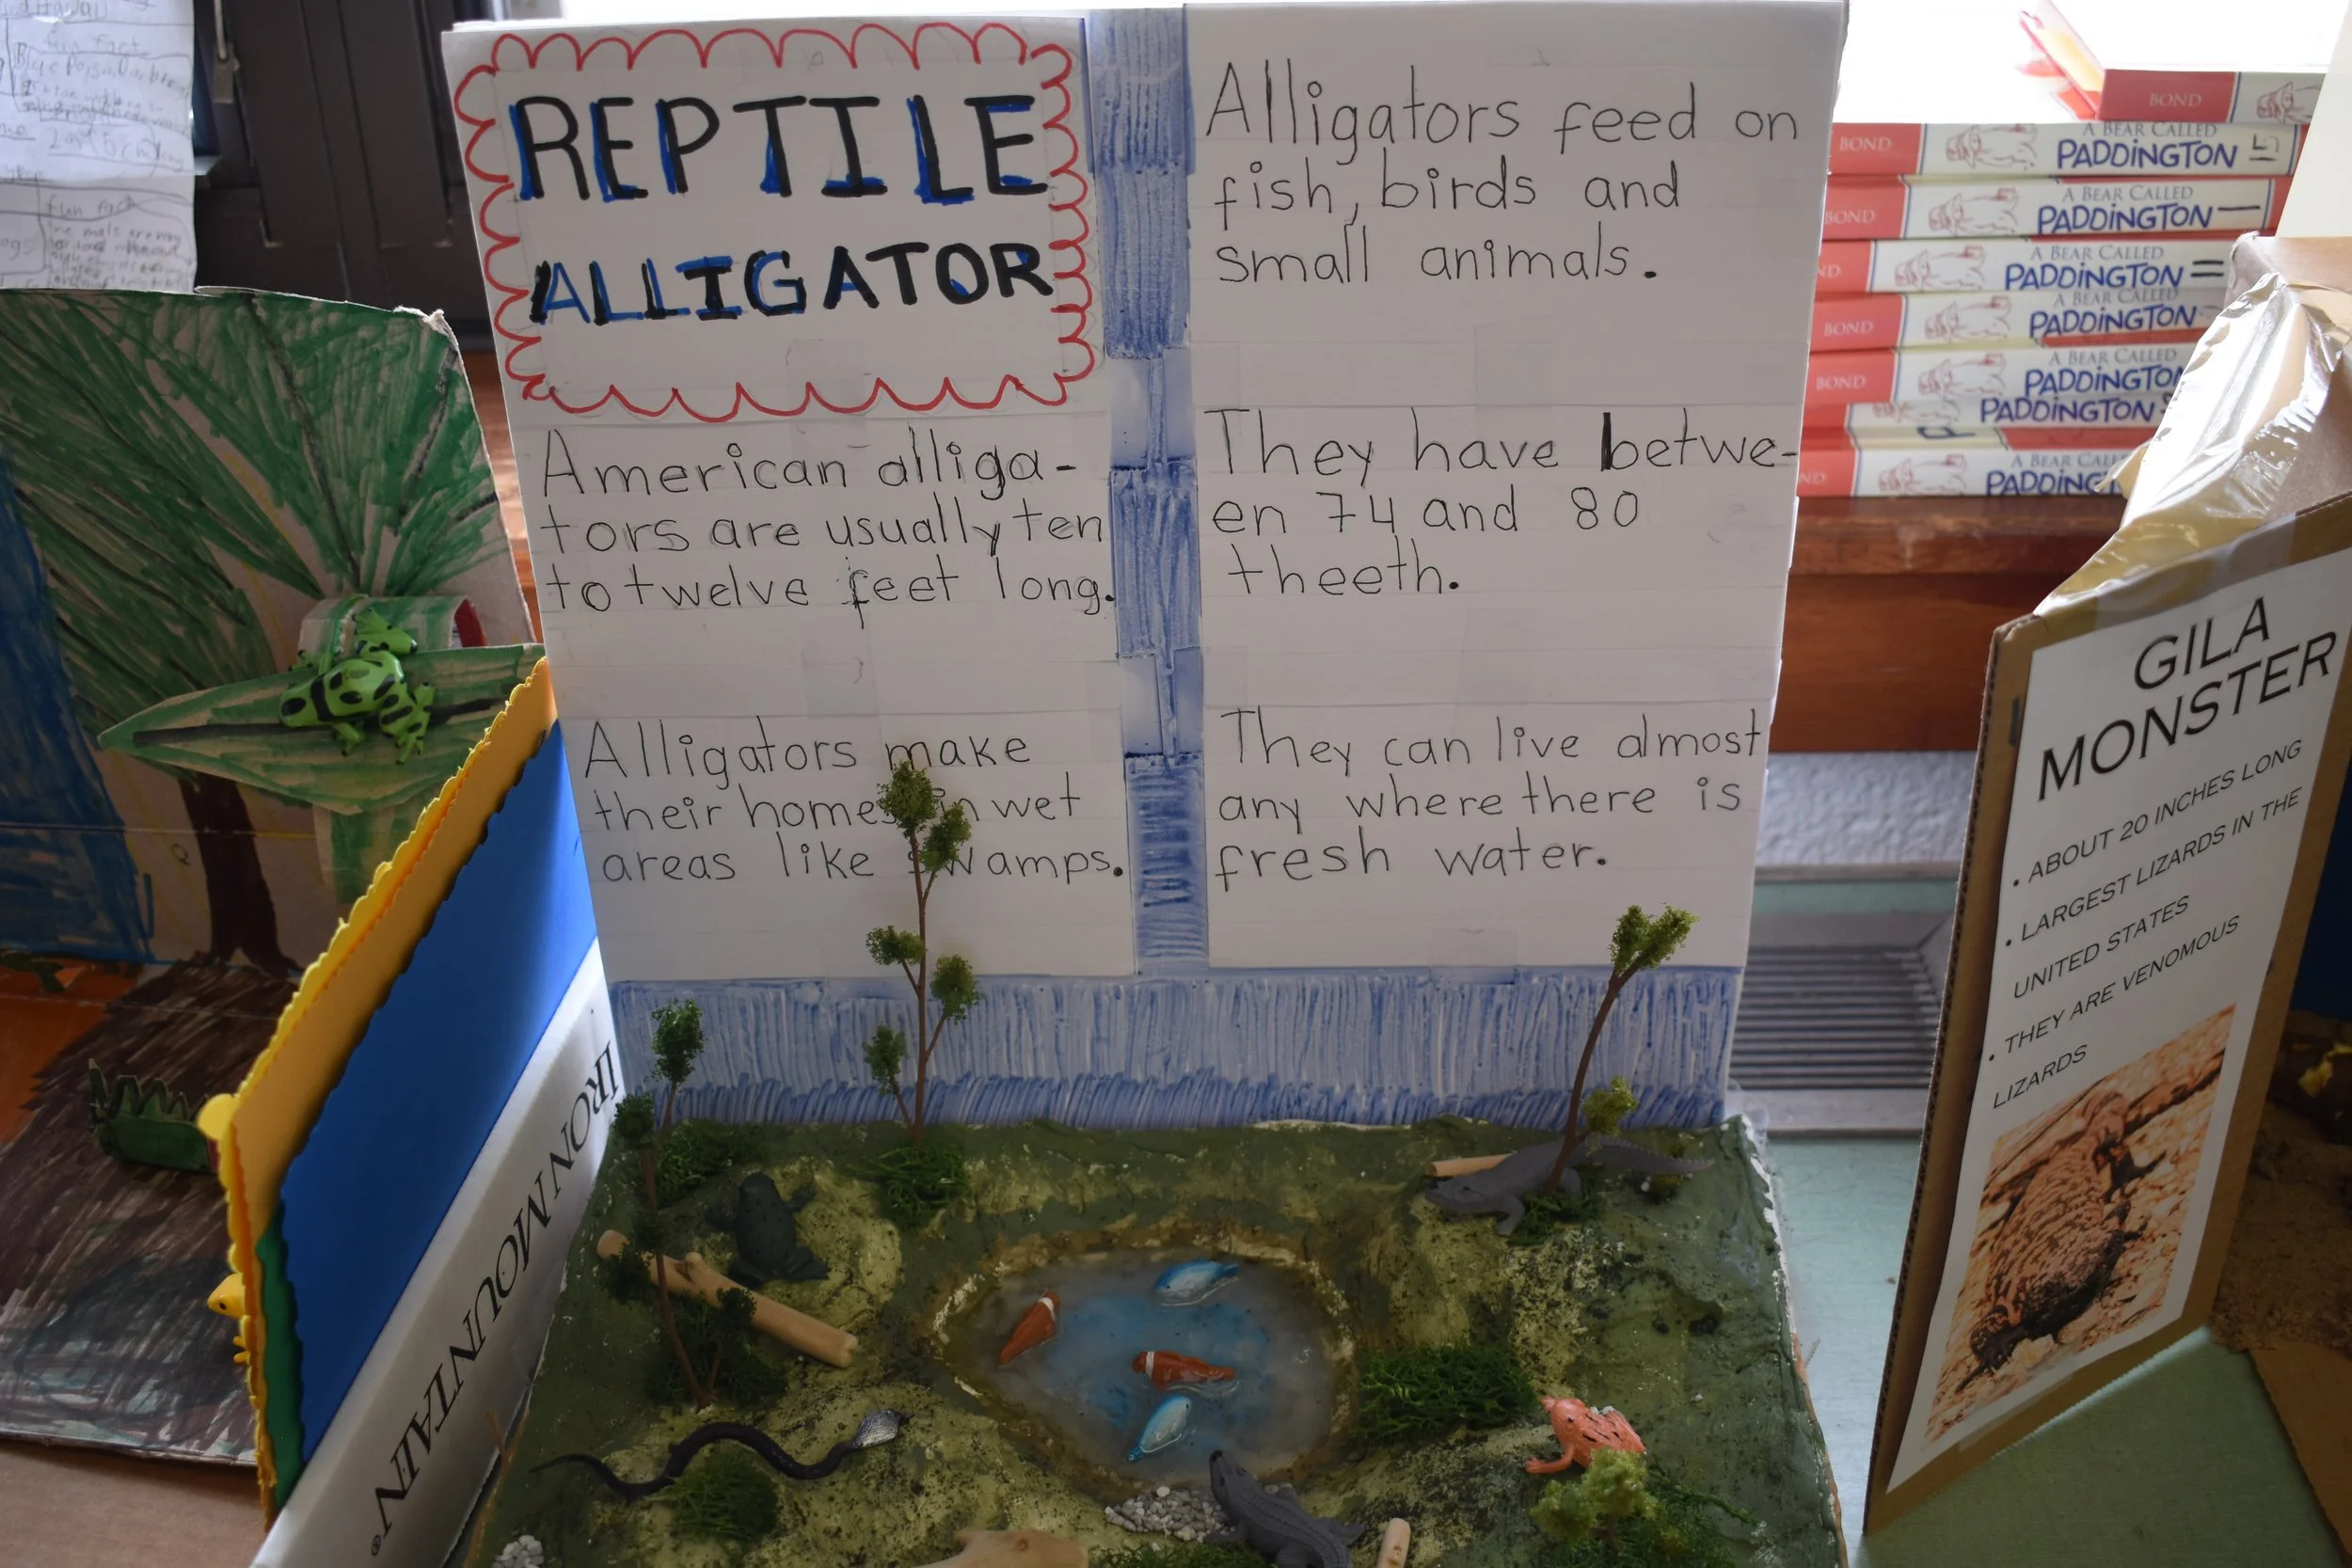 REPTILE
ALLIGATOR
American alliga-
tors are usually ten
to twelve feet long.
Alligators make
their homes in wet
areas like swamps.
Alligators feed on
fish, birds and
small animals.
They have betwe-
en 74 and 80
theeth.
They can live almost
any where there is
fresh water.
GILA
MONSTER
• ABOUT 20 INCHES LONG
• LARGEST LIZARDS IN THE
UNITED STATES
• THEY ARE VENOMOUS
LIZARDS
IRON MOUNTAIN®
BOND
BOND A BEAR CALLED PADDINGTON
BOND A BEAR CALLED PADDINGTON
A BEAR CALLED PADDINGTON
BOND A BEAR CALLED PADDINGTON
BOND A BEAR CALLED PADDINGTON
PADDINGTON
A BEAR CALLED PADDINGTON
fun fact
fun fact